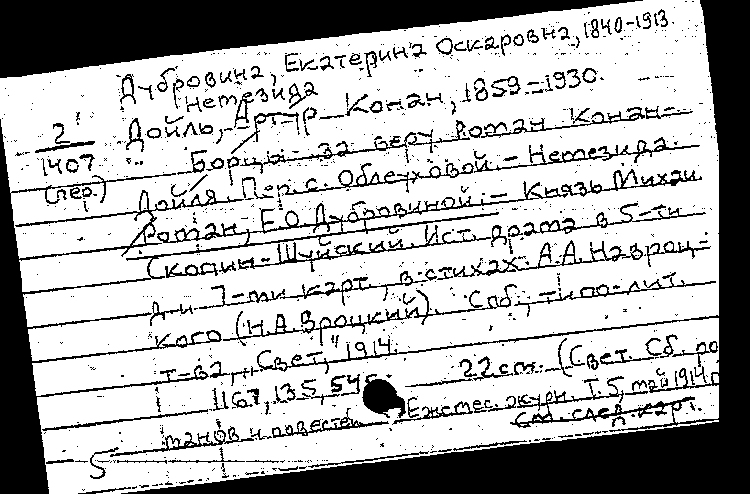 Дубровина, Екатерина Оскаровна, 1840-1913.
Немезида
2
1407
(пер.)
Дойль, Артур Конан, 1859-1930.
Борцы за веру. Роман Конан-
Дойля. Пер. с. Облеуховой. - Немезида.
Роман, Е.О. Дубровиной. - Князь Михаил
Скопин-Шуйский. Ист. драма в 5-ти
д. и 7-ми карт., в стихах. А.А. Навроц-
кого (Н.А. Вроцкий). Спб., типо-лит.
т-ва „Свет," 1914.
1167, 135, 545 22см. (Свет. Сб. ро
манов и повестей Ежемес. журн. Т. 5, май 1914 г
См. след. карт.
5